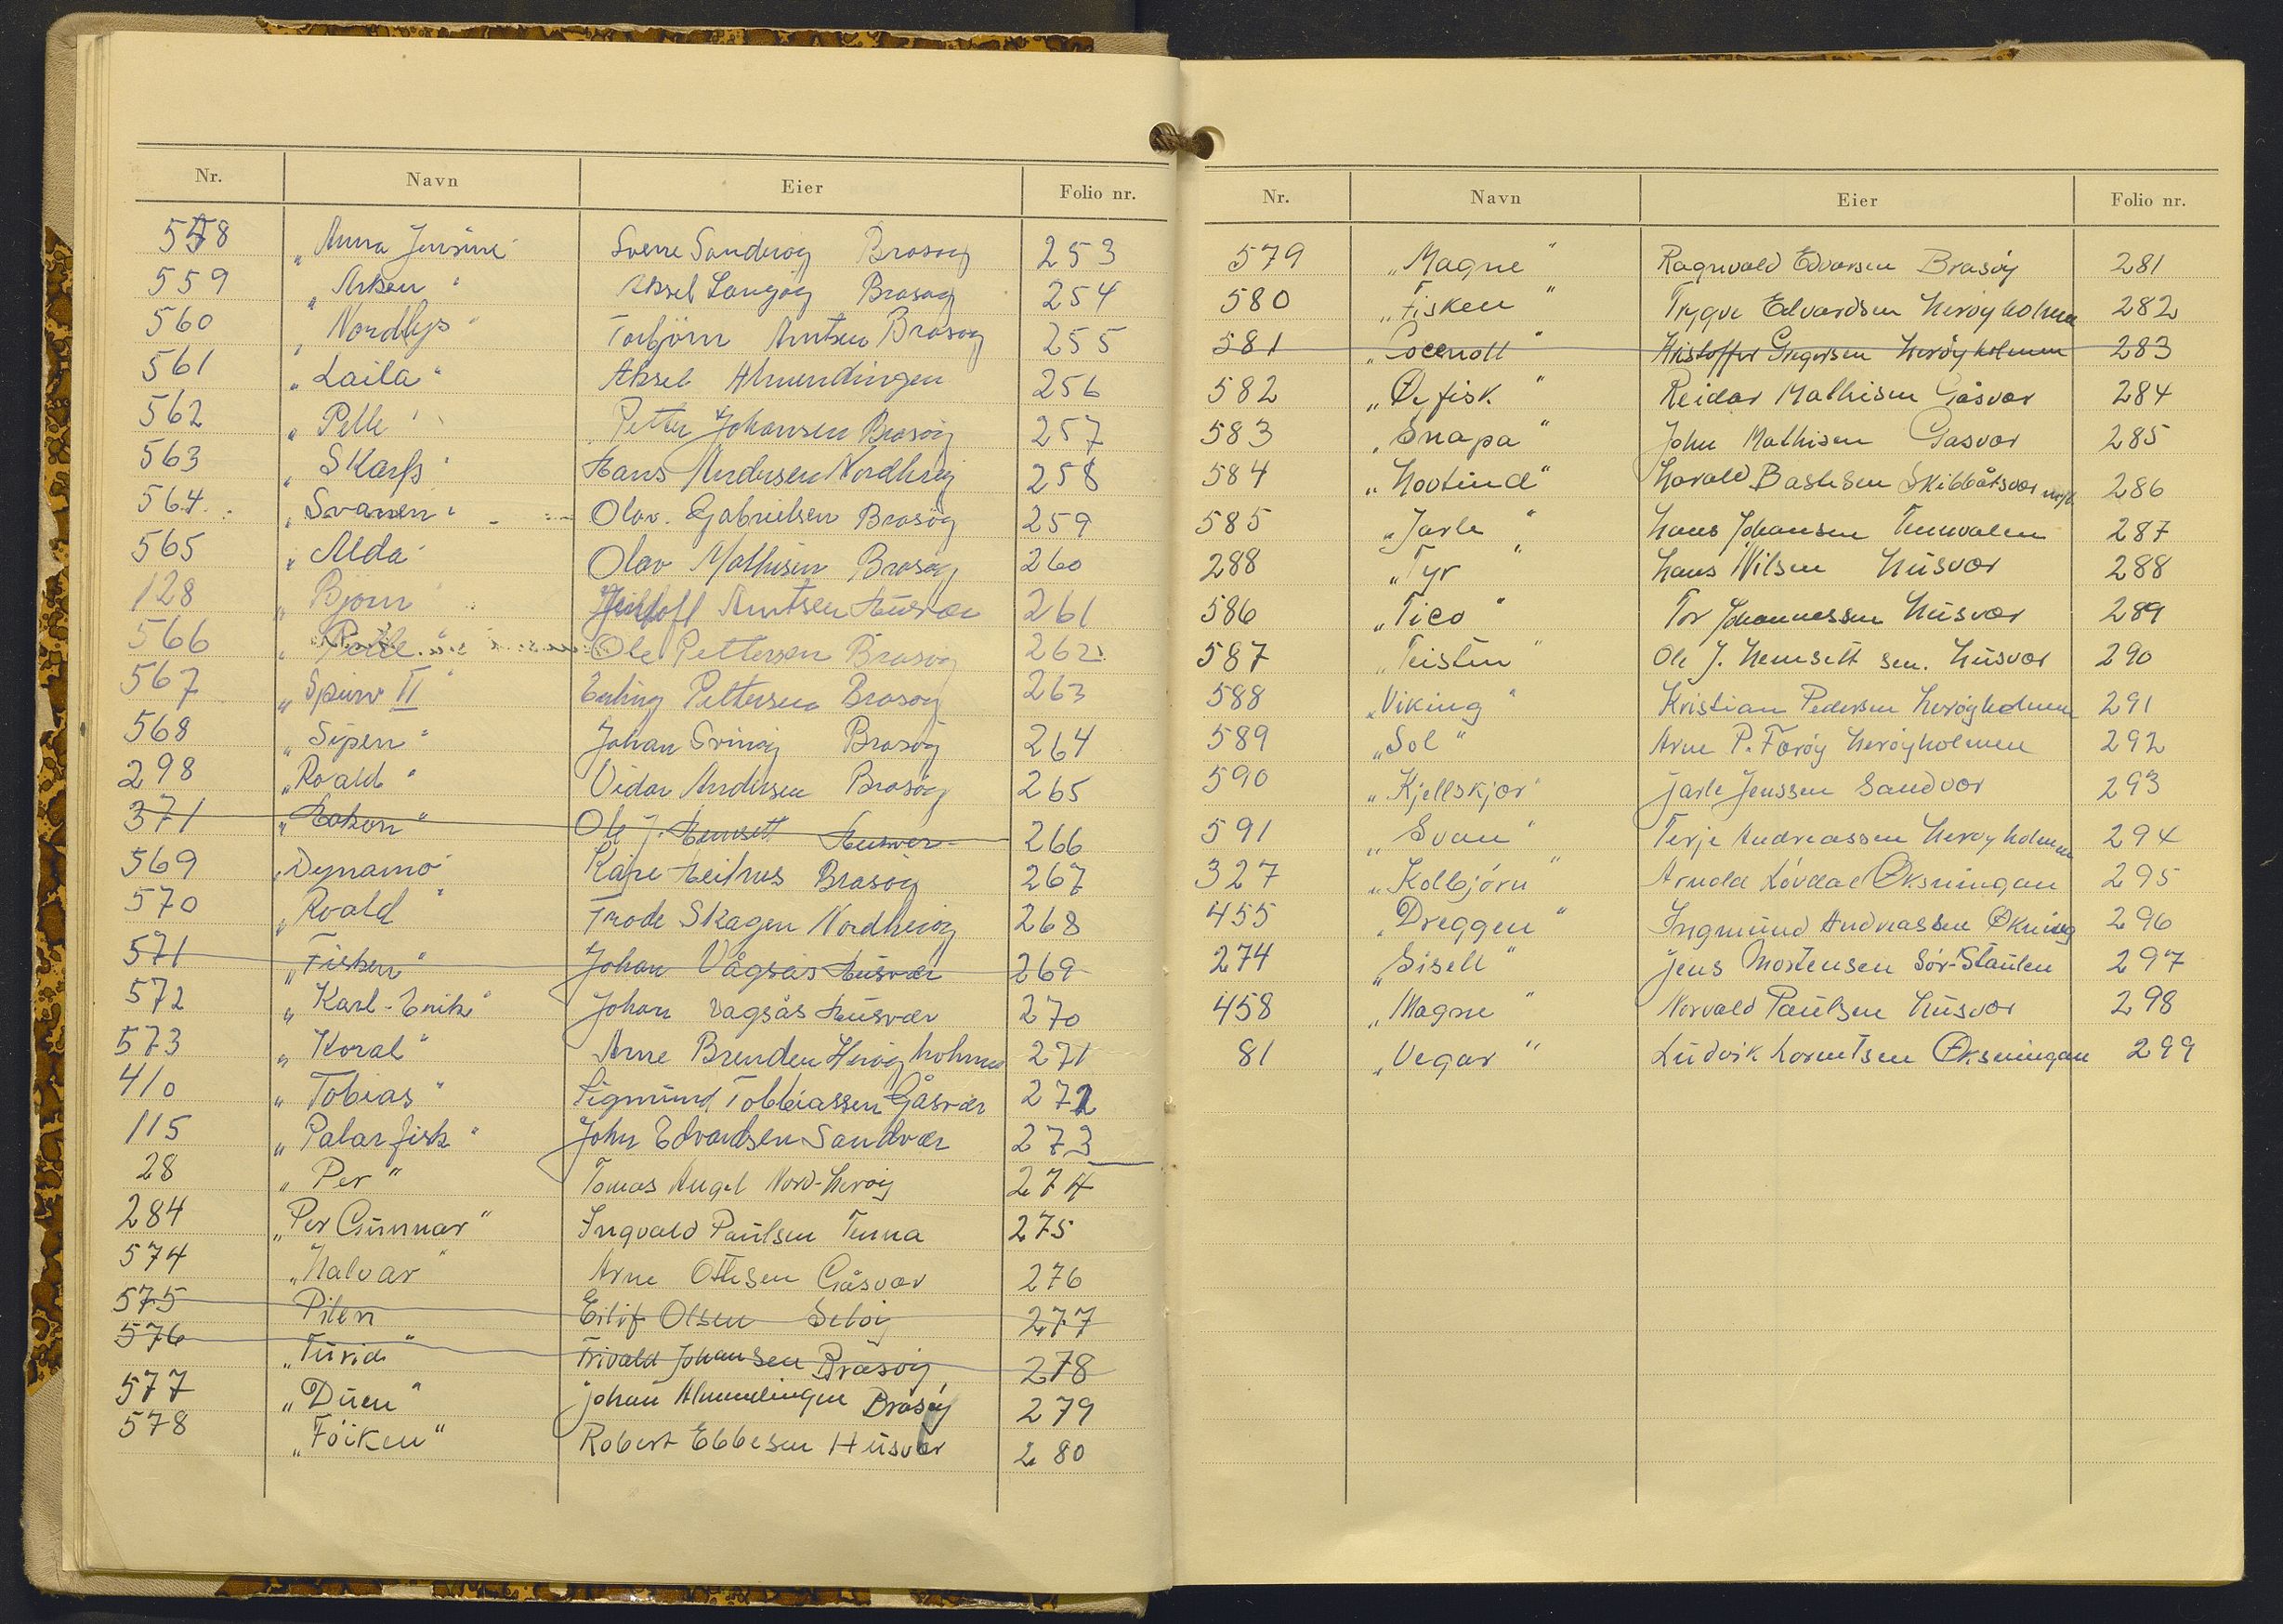 Nr. Navn Eier Folio nr.
558 „Anna Jensine" Sverre Sandvær Brasøy 253
559 „Arken" Aksel Langøy Brasøy 254
560 „Nordlys" Torbjörn Arntsen Brasøy 255
561 „Laila" Aksel Almendingen 256
562 „Pelle" Petter Johansen Brasøy 257
563 „Skarfs" Hans Andersen Nordherøy 258
564 „Svanen" Olav Gabrielsen Brasøy 259
565 „Alda" Olav Mathisen Brasøy 260
128 „Björn" Arntsen Husvær 261
566 „Pelle" Ole Pettersen Brasøy 262
567 „Spurv II" Erling Pettersen Brasøy 263
568 „Sipen" Johan Svinøy Brasøy 264
298 „Roald" Vidar Andersen Brasøy 265
371 „Håkon" Ole J. Hemsett Husvær 266
569 „Dynamo" Kåre Brasøy 267
570 „Roald" Frode Skagen Nordherøy 268
571 „Fisken" Johan Vågsås Husvær 269
572 „Karl-Erik" Johan Vågsås Husvær 270
573 „Koral" Arne Brenden Herøyholmen 271
410 „Tobias" Sigmund Tobbiassen Gåsvær 272
115 „Palarfisk" John Edvardsen Sandvær 273
28 „Per" Tomas Angel Nord-Herøy 274
284 „Per Gunnar" Ingvald Paulsen Tenna 275
574 „Halvar" Arne Ottesen Gåsvær 276
575 Pilen Eilif Olsen Seløy 277
576 „Turid" Trivald Johansen Brasøy 278
577 „Duen" Johan Almendingen Brasøy 279
578 „Föiken" Robert Ebbesen Husvær 280
Nr. Navn Eier Folio nr.
579 „Magne" Ragnvald Edvarsen Brasöy 281
580 „Fisken" Trygve Edvardsen Heröyholmen 282
581 Kristoffer Gregersen Heröyholmen 283
582 „Örfisk" Reidar Mathisen Gåsvær 284
583 „Snapa" John Mathisen Gåsvær 285
584 „Havtind" Harald Basksen Skibbåtsvær 286
585 „Jarle" Hans Johansen Tennvalen 287
288 „Tyr" Hans Nilsen Husvær 288
586 „Tico" Tor Johannessen Husvær 289
587 „Teisten" Ole J. Hemsett sen. Husvær 290
588 „Viking" Kristian Pedersen Heröyholmen 291
589 „Sol" Arne P. Faröy Heröyholmen 292
590 „Kjellskjær" Jarle Jenssen Sandvær 293
591 „Svan" Terje Andreassen Heröyholmen 294
327 „Kolbjörn" Arnold Lövdal Øksningan 295
455 „Dreggen" Ingmund Andreassen Øksning 296
274 „Sisell" Jens Mortensen Sör-Staulen 297
458 „Magne" Norvald Paulsen Husvær 298
81 „Vegar" Ludvik Lorentsen Øksningan 299